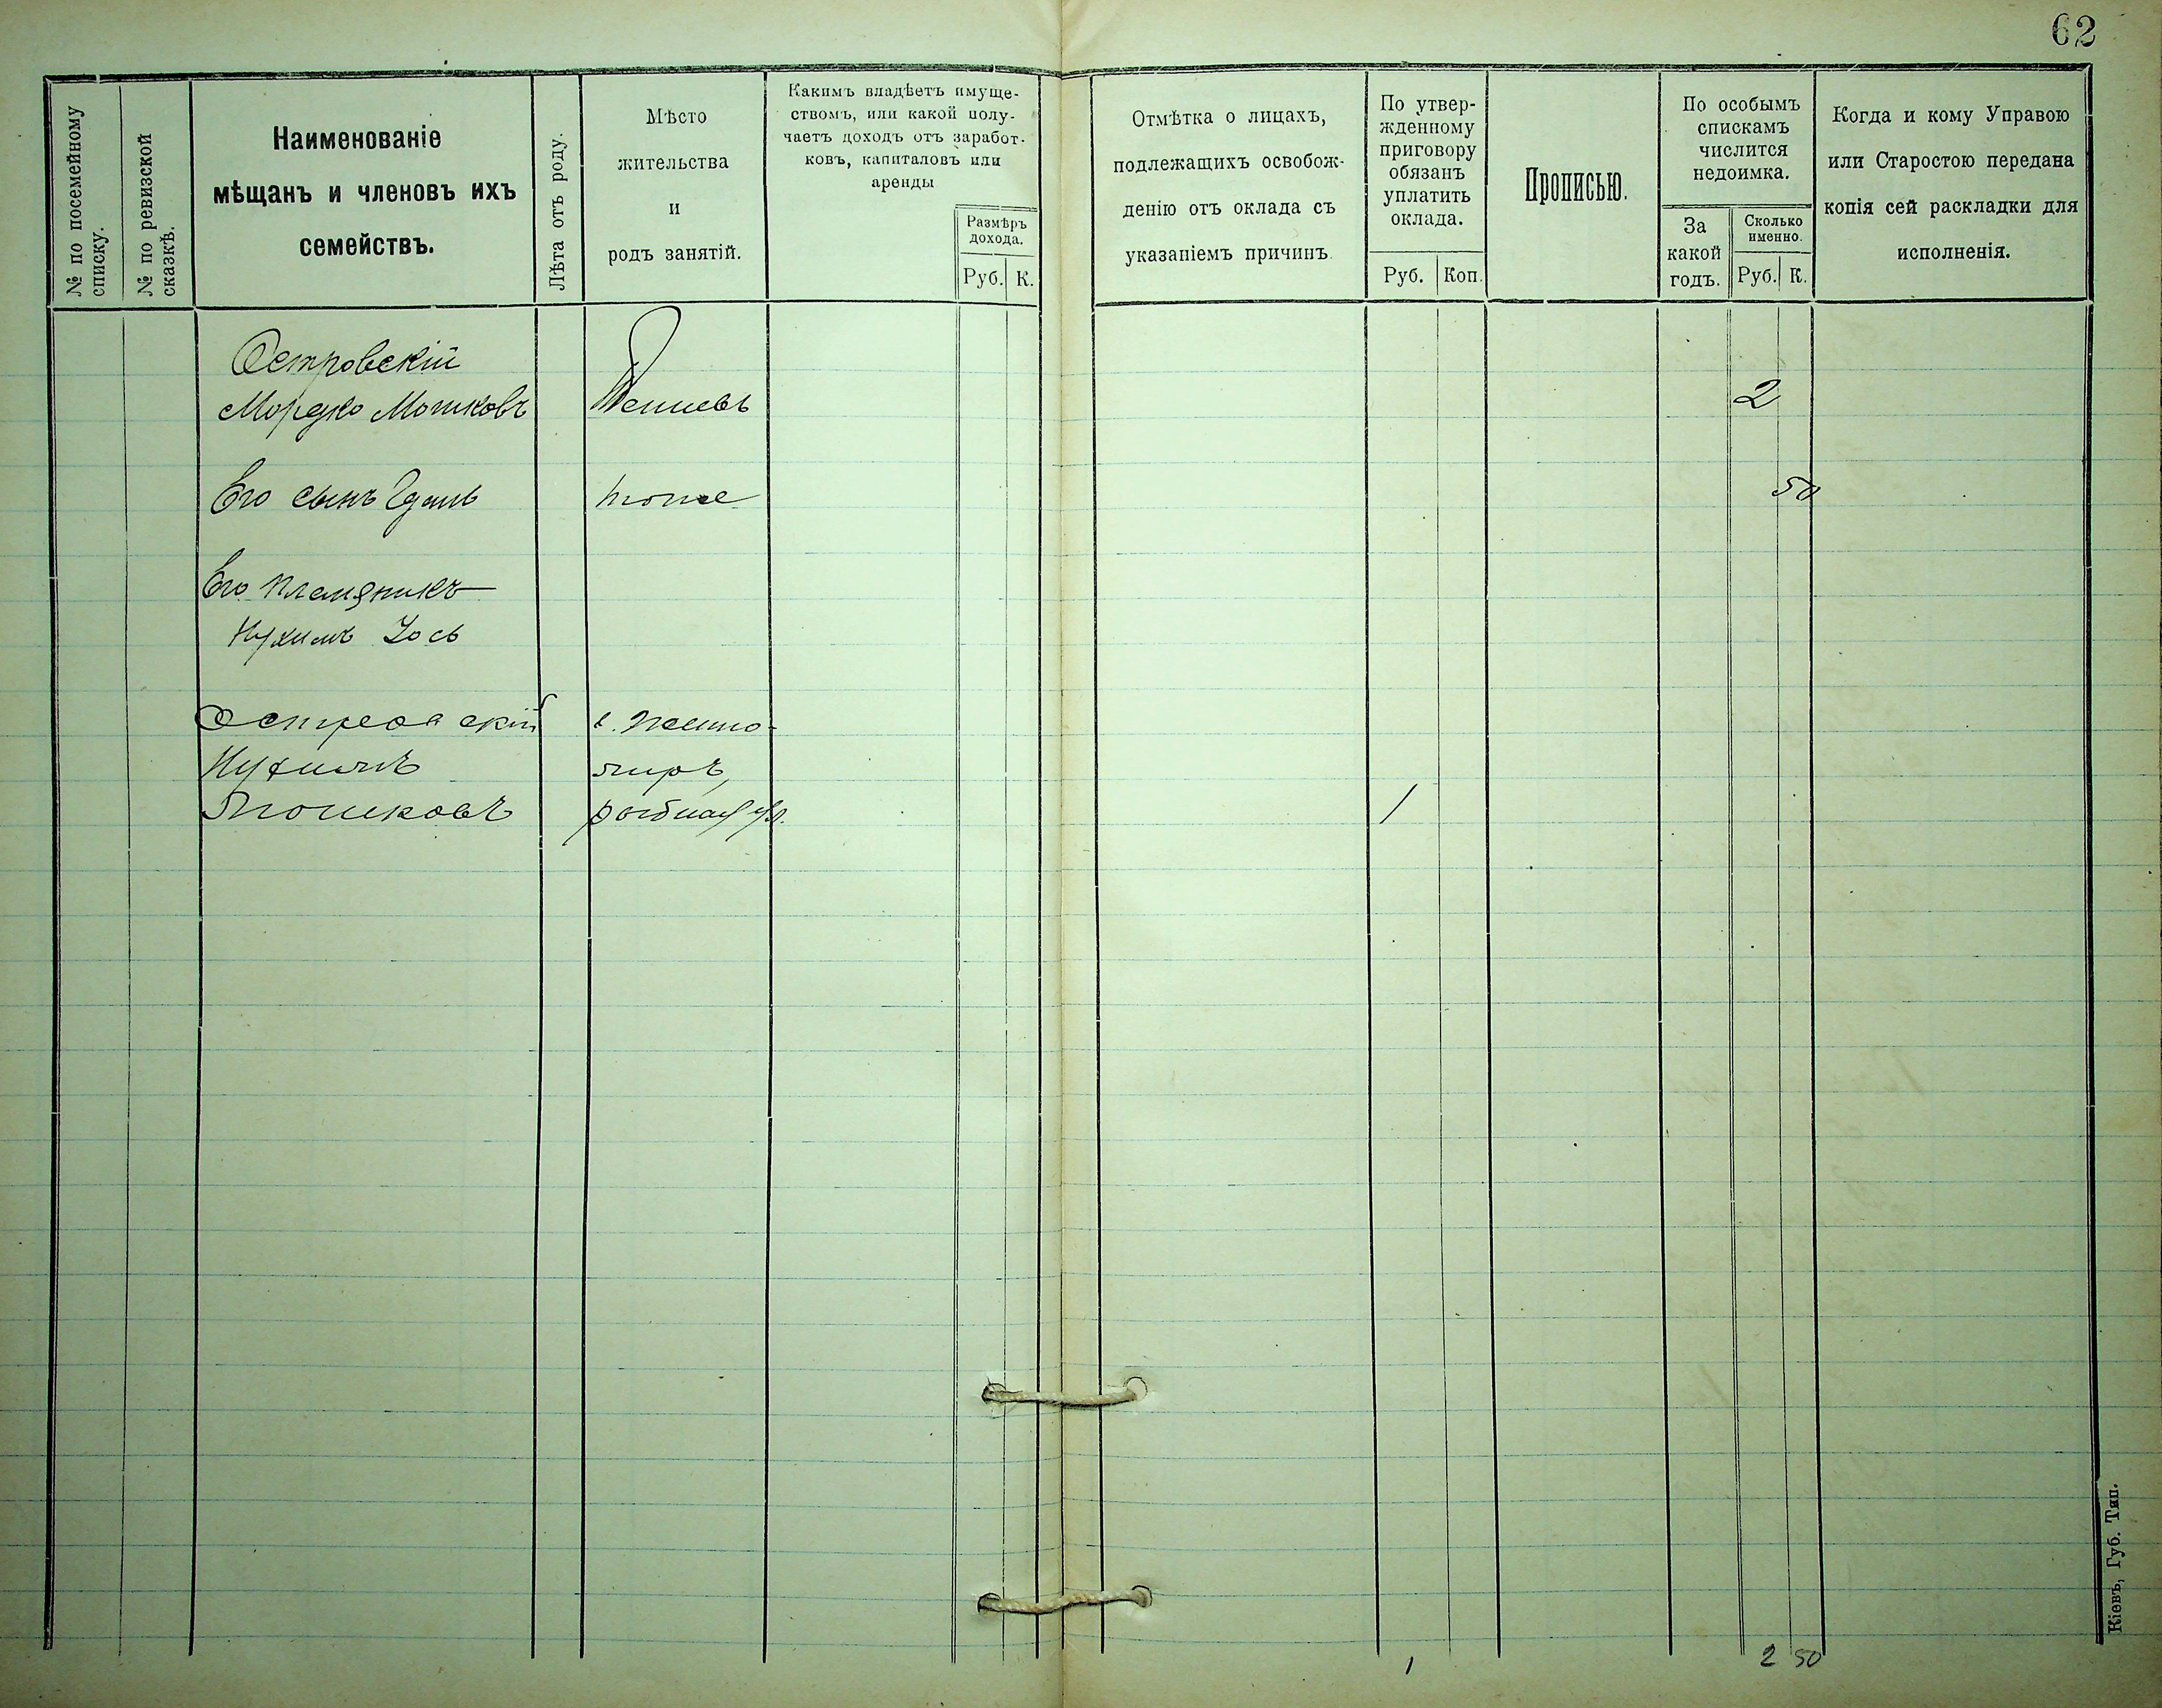 62
№ по посемейному
списку.
№ по ревизской
сказкѣ.
Наименованіе
мѣщанъ и членовъ ихъ
семействъ.
Лѣта отъ роду.
Мѣсто
жительства
и
родъ занятій.
Какимъ владѣетъ имуще-
ствомъ, или какой полу-
чаетъ доходъ отъ заработ-
ковъ, капиталовъ или
аренды
Размѣръ
дохода.
Руб. К.
Отмѣтка о лицахъ,
подлежащихъ освобож-
денію отъ оклада съ
указаніемъ причинъ.
По утвер-
жденному
приговору
обязанъ
уплатить
оклада.
Руб. Коп.
Прописью.
По особымъ
спискамъ
числится
недоимка.
За
какой
годъ.
Сколько
именно.
Руб. К.
Когда и кому Управою
или Старостою передана
копія сей раскладки для
исполненія.
Островскій
Мордко Мошковъ
2
Его сынъ
тоже
50
Его племяникъ
Нухимъ Іось
Островскій
Нухимъ
Мошковъ
г. Жито-
миръ,
рыбная ул.
1
1
2 50
Кіевъ, Губ. Тип.